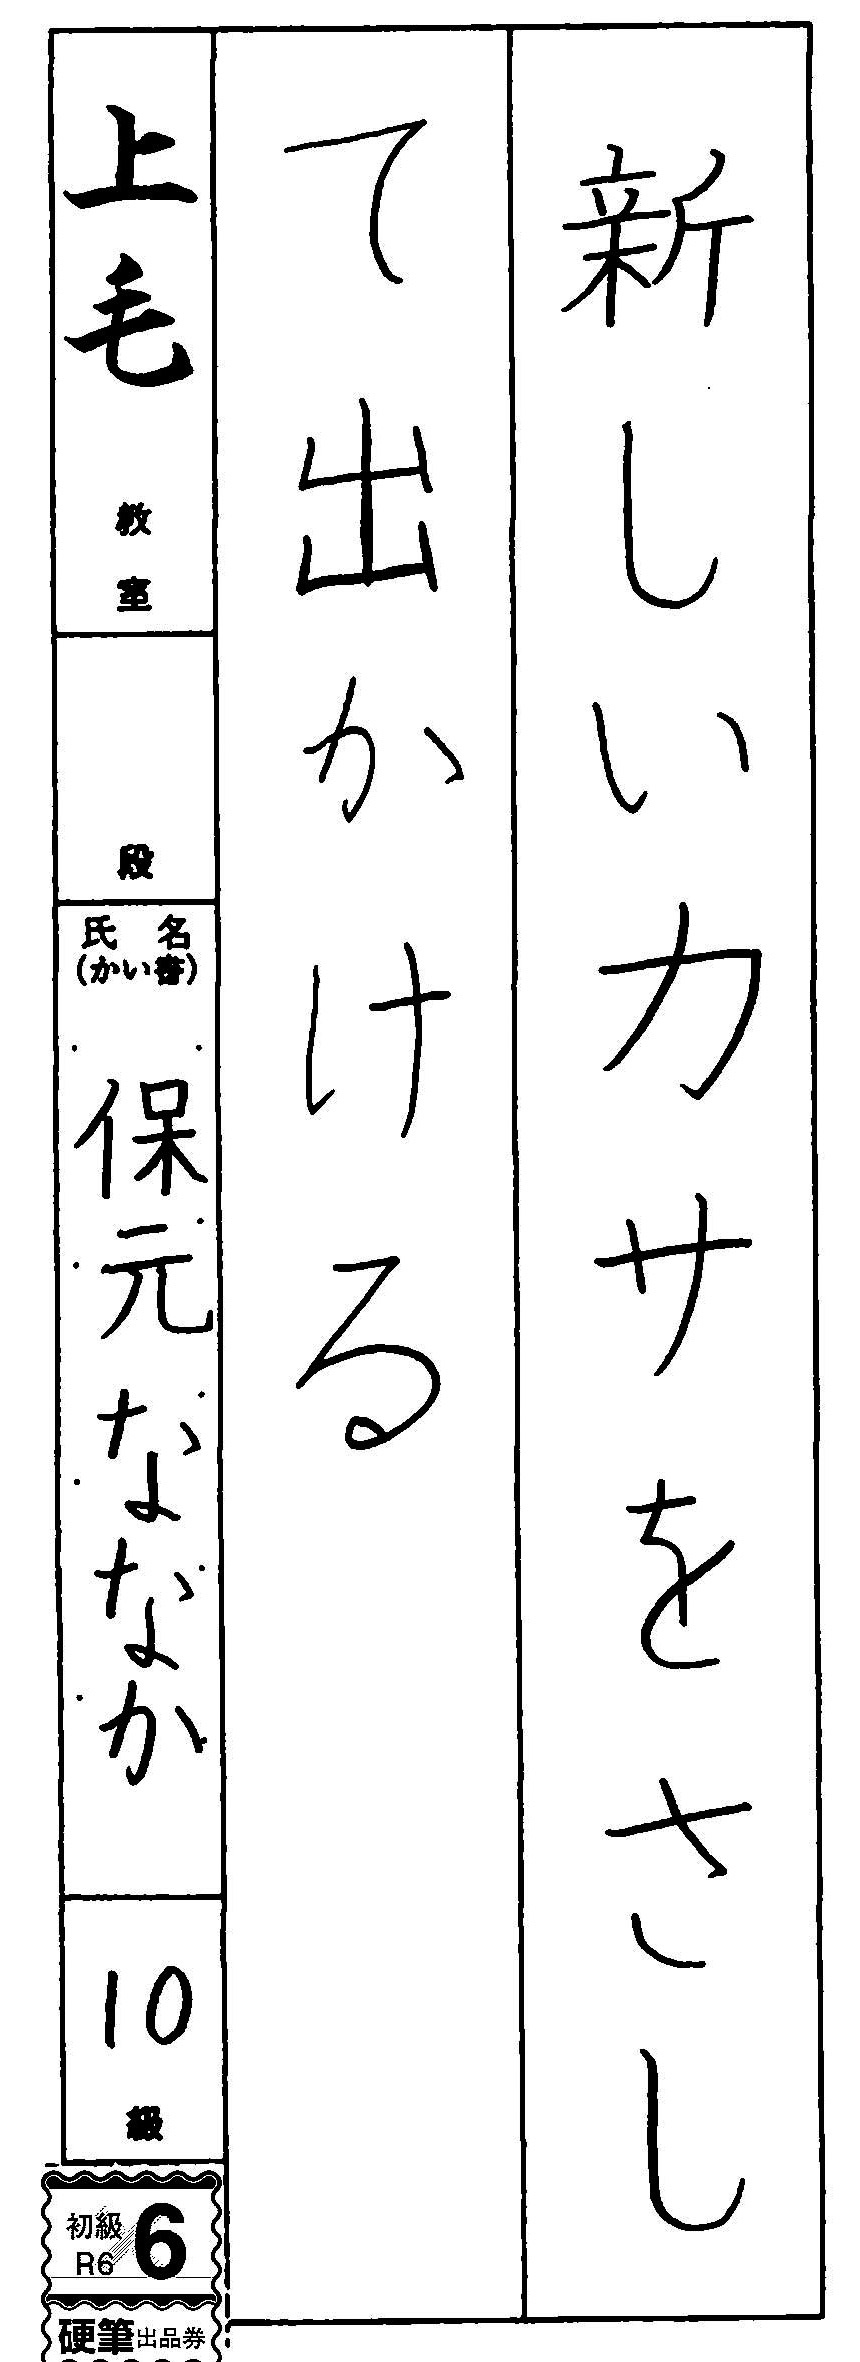 新しいカサをさし
て出かける
上毛教室
段
氏名
(かい書)
保元ななか
10級
初級
R6
6
硬筆出品券